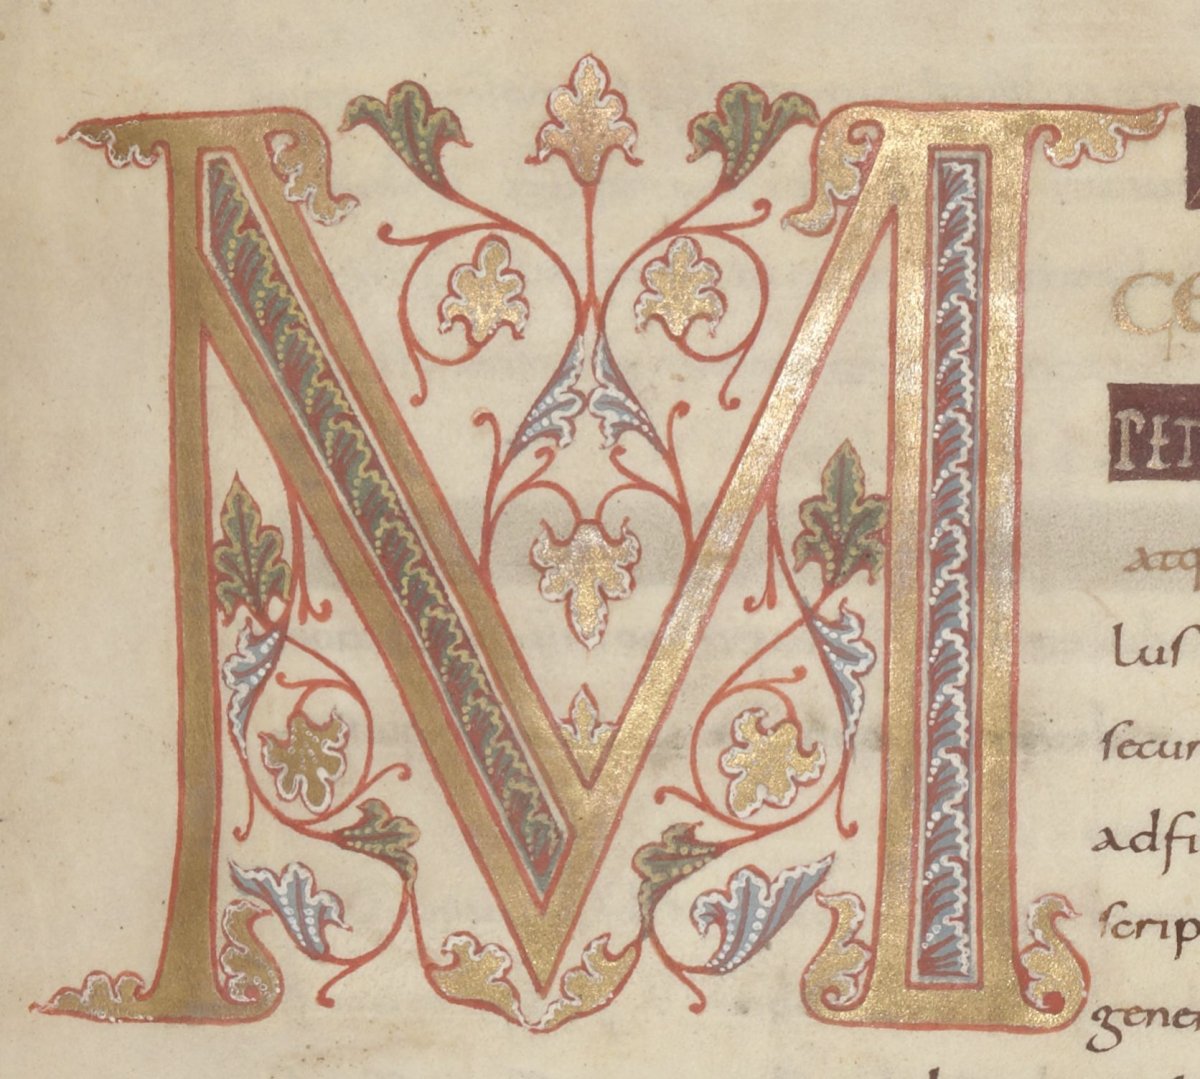 M
CO
PER
atq
luſ
ſecun
adfi
ſcrip
gene